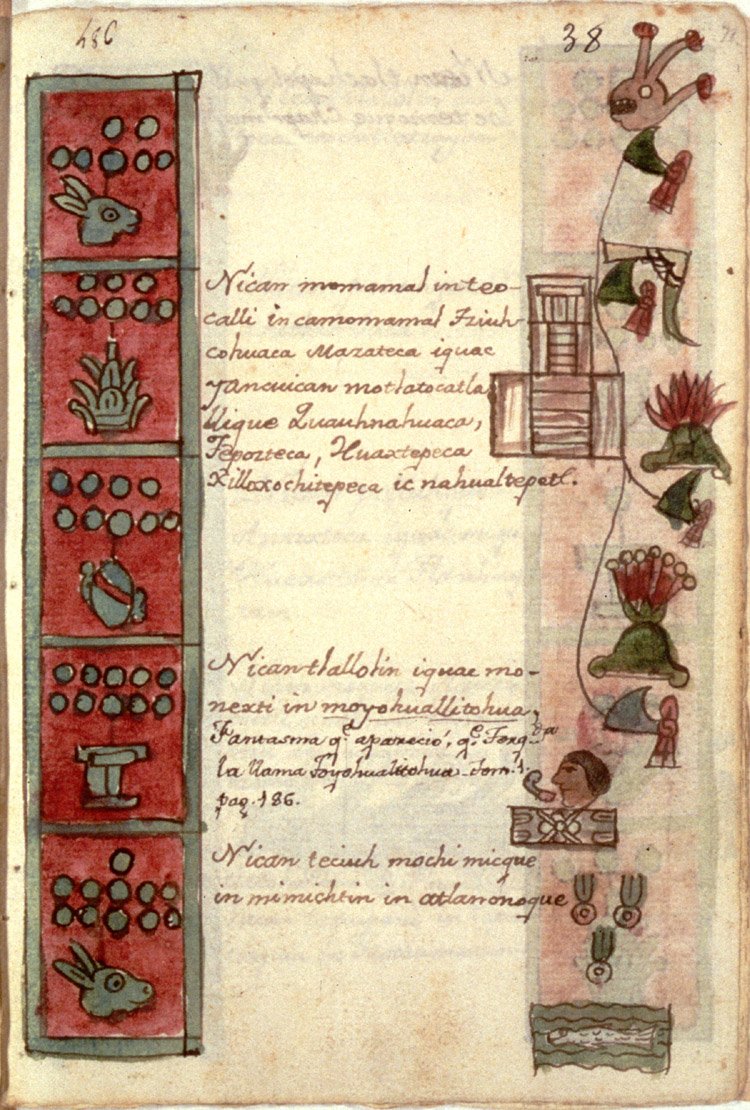 38
Nican momamal in teo-
calli in camomamal Tziuh-
cohuaca Mazateca iquac
yancuican motlatocatla
llique Quauhnahuaca,
Tepozteca, Huaxtepeca
Xilloxochitepeca ic nahualtepetl.
Nican tlallolin iquac mo-
nexti in moyohuallitohua,
Fantasma q.e aparecio, q.e Torq.da
la llama Toyohualitohua Tom. 1.
pag. 186.
Nican teciuh mochi micque
in mimichtin in atlanonoque